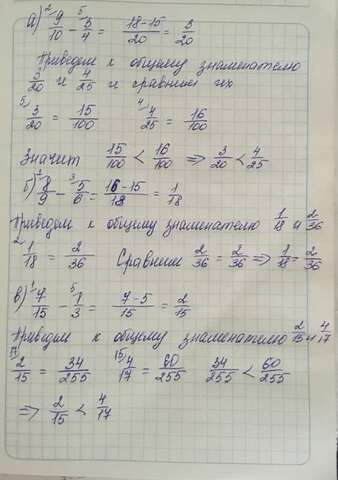 а) ²9/10 - ⁵3/4 = 18-15/20 = 3/20
Приведем к общему знаменателю
3/20 и 4/25 и сравним их
⁵3/20 = 15/100 ⁴4/25 = 16/100
Значит 15/100 < 16/100 => 3/20 < 4/25
б) ²8/9 - ³5/6 = 16-15/18 = 1/18
Приведем к общему знаменателю 1/18 и 2/36
²1/18 = 2/36 Сравним 2/36 = 2/36 => 1/18 = 2/36
в) ¹7/15 - ⁵1/3 = 7-5/15 = 2/15
Приведем к общему знаменателю 2/15 и 4/17
¹⁷2/15 = 34/255 ¹⁵4/17 = 60/255 34/255 < 60/255
=> 2/15 < 4/17